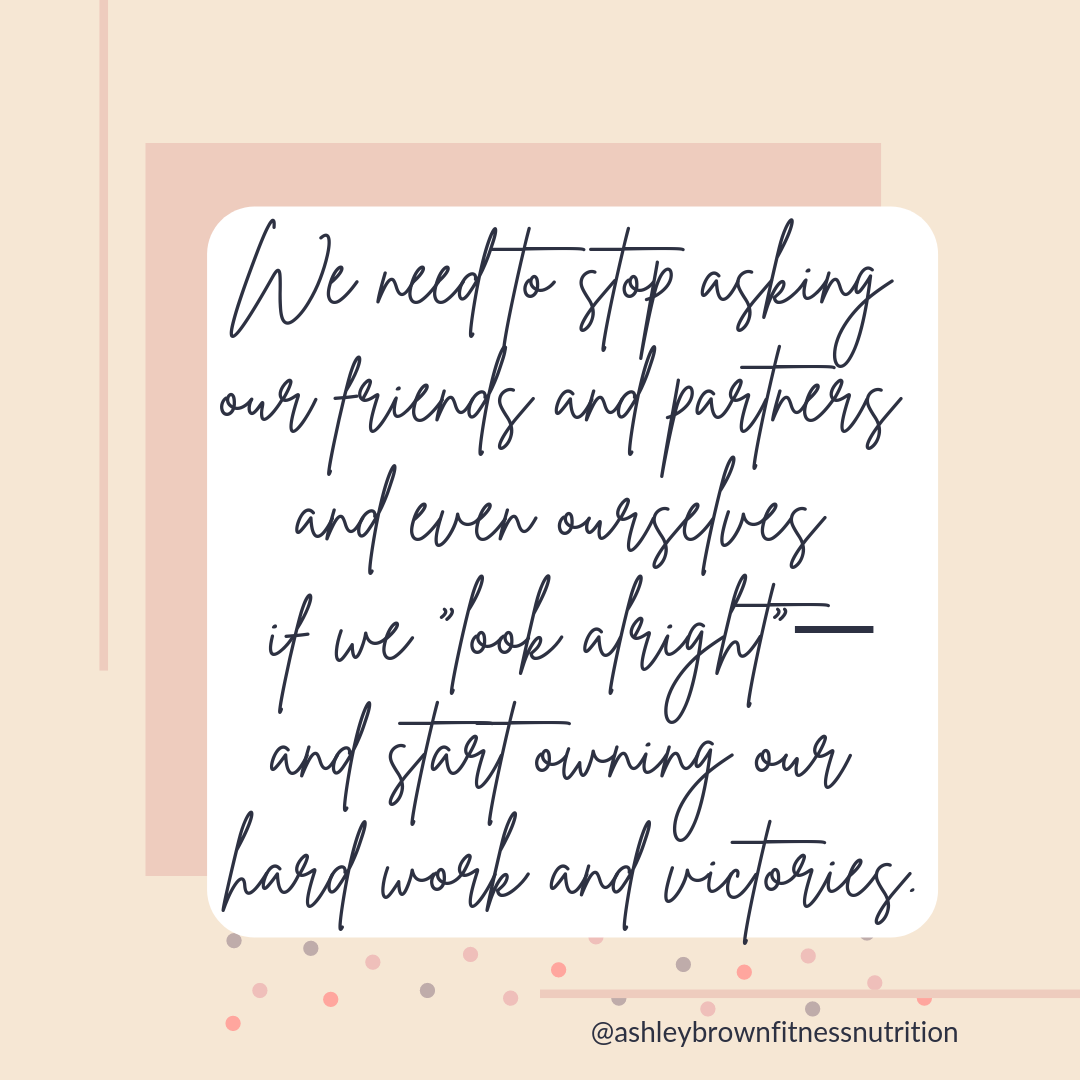 We need to stop asking
our friends and partners
and even ourselves
if we ”look alright”—
and start owning our
hard work and victories.
@ashleybrownfitnessnutrition